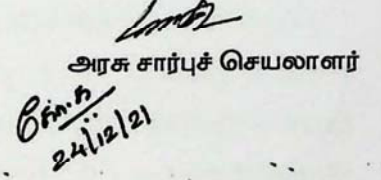 அரசு சார்புச் செயலாளர்
24/12/21